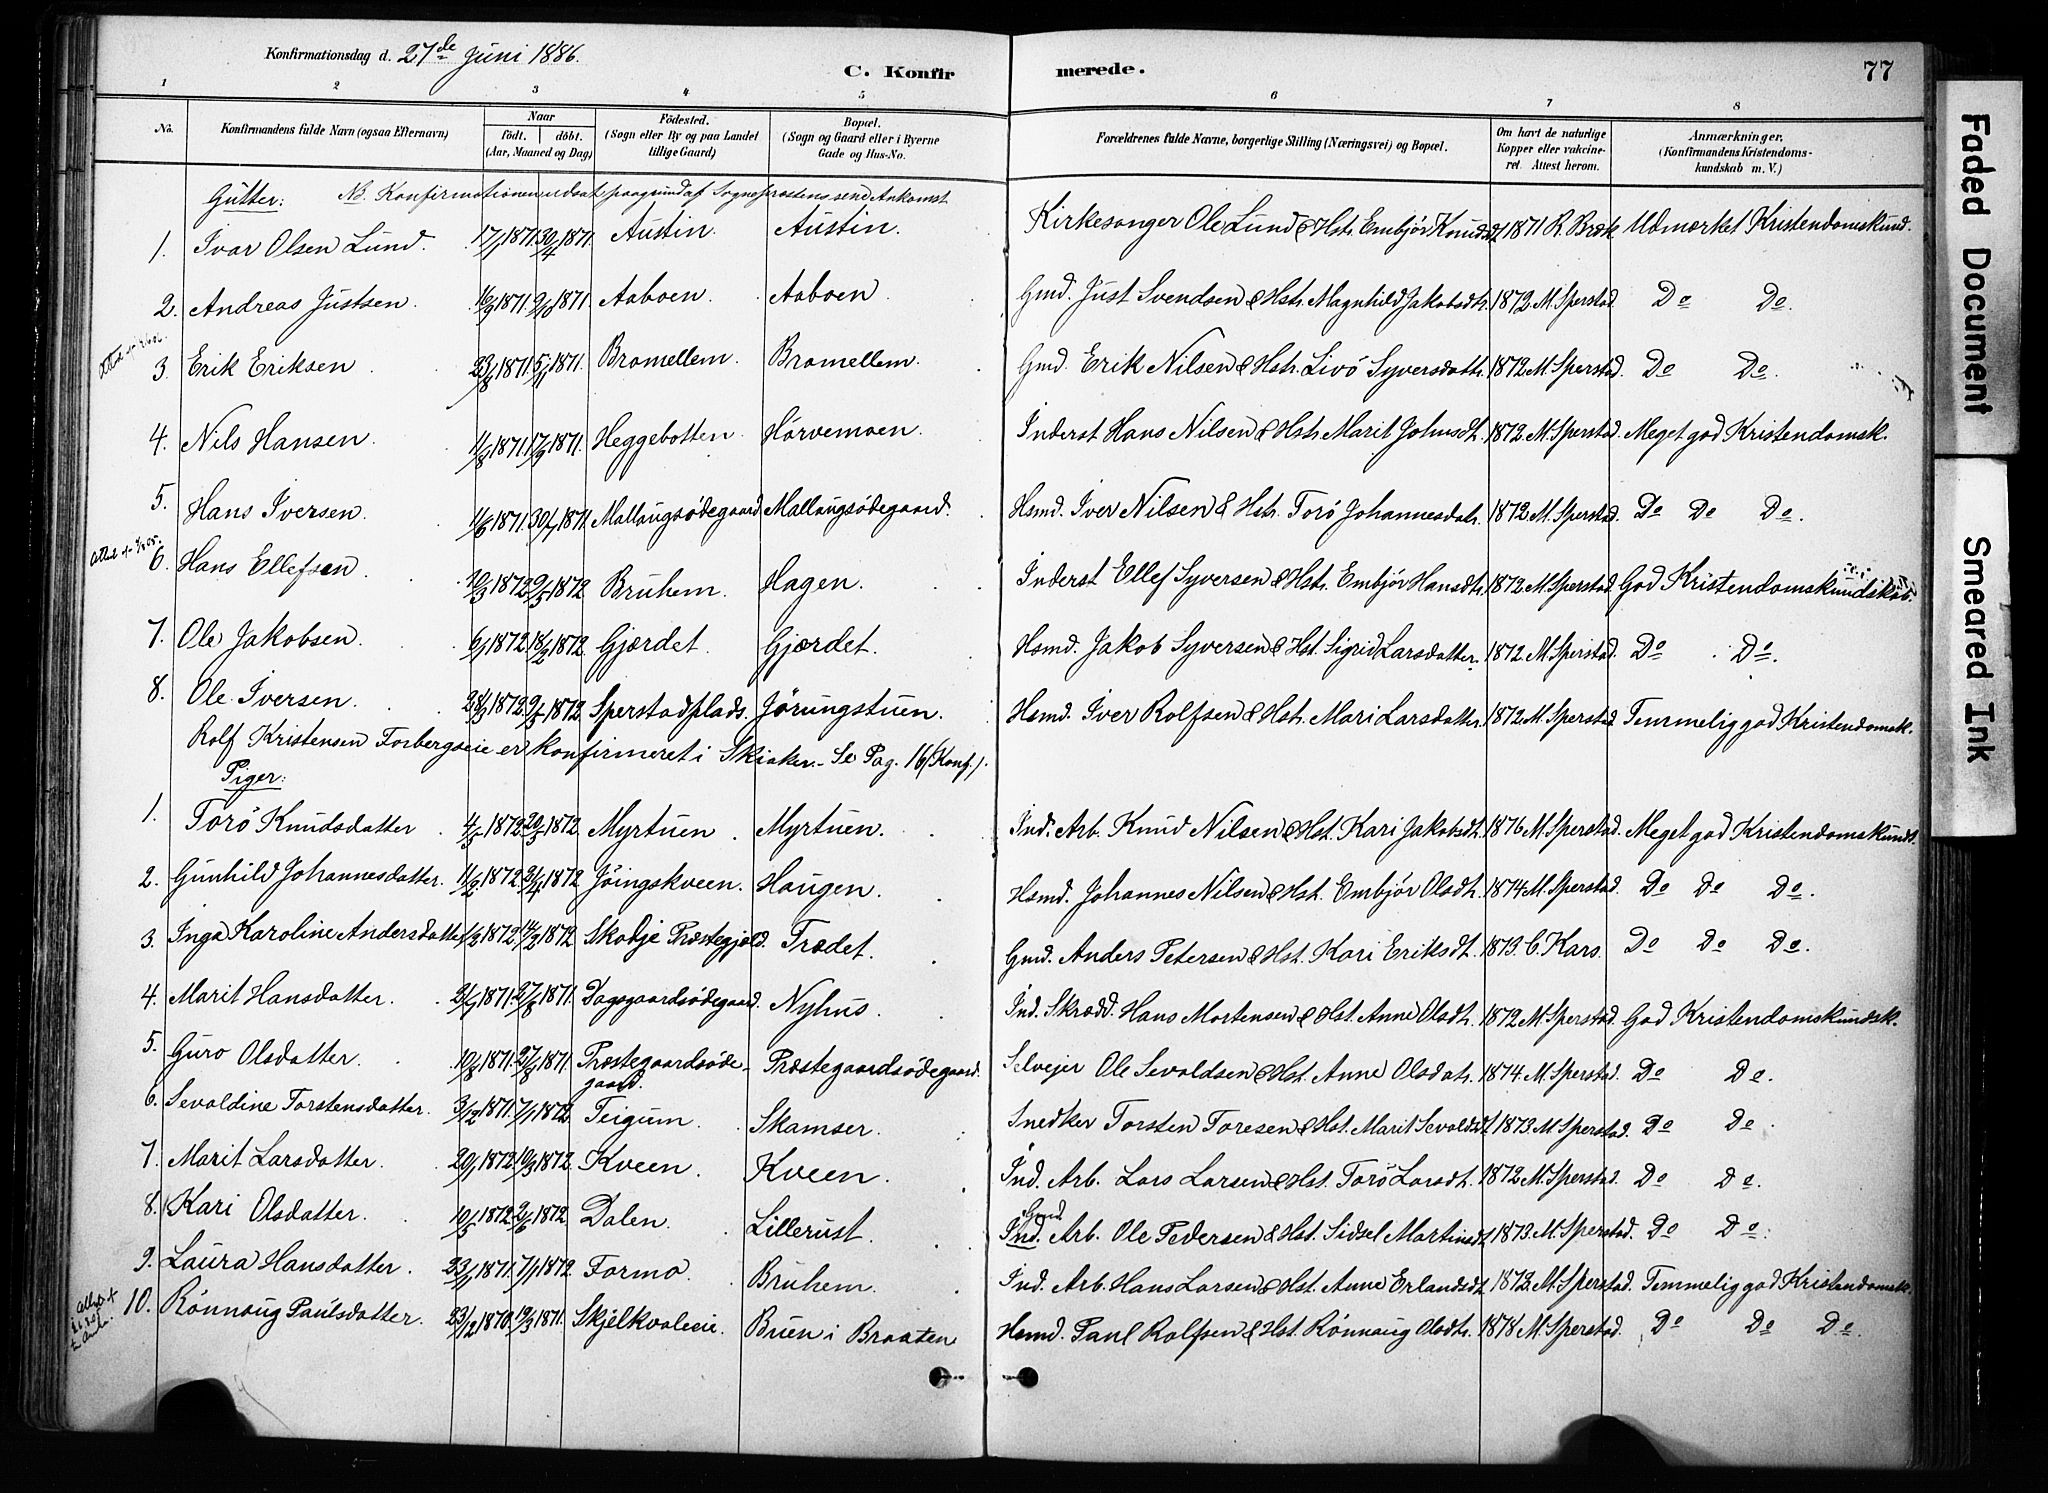 Konfirmationsdag d. 27de Juni 1886.
C. Konfirmerede.
77
1 2 3 4 5 6 7 8
No. Konfirmandens fulde Navn (ogsaa Efternavn) Naar født. døbt. (Aar, Maaned og Dag) Fødested. (Sogn eller By og paa Landet tillige Gaard) Bopæl. (Sogn og Gaard eller i Byerne Gade og Hus-No. Forældrenes fulde Navne, borgerlige Stilling (Næringsvei) og Bopæl. Om havt de naturlige Kopper eller vakcineret. Attest herom. Anmærkninger. (Konfirmandens Kristendomskundskab m. V.)
Gutter: NB. Konfirmationen udsat paagrund af Sognepræstens sene Ankomst
1. Ivar Olsen Lund. 1871. 1871. Austin. Austin. Kirkesanger Ole Lund & Hst. Embjør Knudsdt. 1871 R. Bræk Udmærket Kristendomskund.
2. Andreas Justsen. 1871. 1871. Aaboen. Aaboen. Gmd. Just Svendsen & Hstr. Magnhild Jakobsdtr. 1872. M. Sperstad. Do Do.
3. Erik Eriksen 23/8 1871. 5/11 1871. Bramellem. Bramellem. Gmd. Erik Nilsen & Hstr. Livö Syversdattr. 1872. M. Sperstad. Do Do.
4. Nils Hansen. 11/8 1871. 17/9 1871. Heggebotten. Hårvemoen. Inderst Hans Nilsen & Hstr. Marit Johnsdt. 1872. M. Sperstad. Meget god Kristendomsk.
5. Hans Iversen. 1871. 1871. Mallaugsødegaard Mallaugsødegaard. Hsmd. Iver Nilsen & Hstr. Torö Johannesdatr. 1872. M. Sperstad. Do Do Do.
6. Hans Ellefsen 10/3 1872. 9/5 1872 Bruhem. Hagen. Inderst Ellef Syversen & Hst. Embjör Hansdtr. 1872. M. Sperstad. God Kristendomskundskab.
7. Ole Jakobsen. 6/1 1872. 18/2 1872. Gjærdet. Gjærdet. Hsmd. Jakob Syversen & Hst. Sigrid Larsdatter. 1872. M. Sperstad. Do Do.
8. Ole Iversen. 28/3 1872. 9/5 1872. Sperstadplads. Jörungstuen. Hsmd. Iver Rolfsen & Hstr. Mari Larsdatter. 1872. M. Sperstad. Temmelig god Kristendomsk.
Rolf Kristensen Forbergseie er konfirmeret i Skiaker. - Se Pag. 16 (Konf.).
Piger:
1. Torö Knudsdatter 4/5 1872. 20/5 1872. Myrtuen. Myrtuen. Ind. Arb. Knud Nilsen & Hst. Kari Jakobsdt. 1876 M. Sperstad. Meget god Kristendomskundt.
2. Gunhild Johannesdatter. 11/2 1872. 21/4 1872 Jöingskveen. Haugen. Hsmd. Johannes Nilsen & Hst. Embjör Olsdt. 1874 M. Sperstad. Do Do Do.
3. Inga Karoline Andersdatter 1872. 14/2 1872. Skodje Præstegjæld. Trædet. Gmd. Anders Petersen & Hst. Kari Eriksdt. 1873. C. Kars. Do Do Do.
4. Marit Hansdatter. 1871. 27/8 1871. Dagsgaardsødegaard. Nyhus. Ind. Skrædd. Hans Mortensen & Hst. Anne Olsdt. 1872 M. Sperstad. God Kristendomskundsk.
5. Guro Olsdatter. 10/8 1871. 27/8 1871. Præstegaardsødegaard. Præstegaardsødegaard. Selvejer Ole Sevaldsen & Hst. Anne Olsdatr. 1874. M. Sperstad. Do Do.
6. Sevaldine Torstensdatter. 3/12 1871. 7/1 1872. Teigum. Skamser. Snedker Torsten Toresen & Hst. Marit Sevaldsdt. 1873. M. Sperstad. Do Do.
7. Marit Larsdatter. 20/1 1872. 10/3 1872. Kveen. Kveen. Ind. Arb. Lars Larsen & Hst. Torö Larsdt. 1872. M. Sperstad. Do Do.
8. Kari Olsdatter. 10/5 1872. 2/6 1872. Dalen. Lillerust. Gmd Ind. Arb. Ole Pedersen & Hst. Sidsel Martinsdt. 1873. M. Sperstad. Do Do.
9. Laura Hansdatter. 1871. 7/1 1872. Formo. Bruhem. Ind. Arb. Hans Larsen & Hst. Anne Erlandsdt. 1873. M. Sperstad. Temmelig god Kristendomsk.
10. Rönnaug Paulsdatter. 23/12 1870. 19/3 1871. Skjelkvaleie. Buen i Braaten Hsmd. Paul Rolfsen & Hst. Rönnaug Olsdtr. 1878 M. Sperstad. Do Do Do.
Faded Document
Smeared Ink